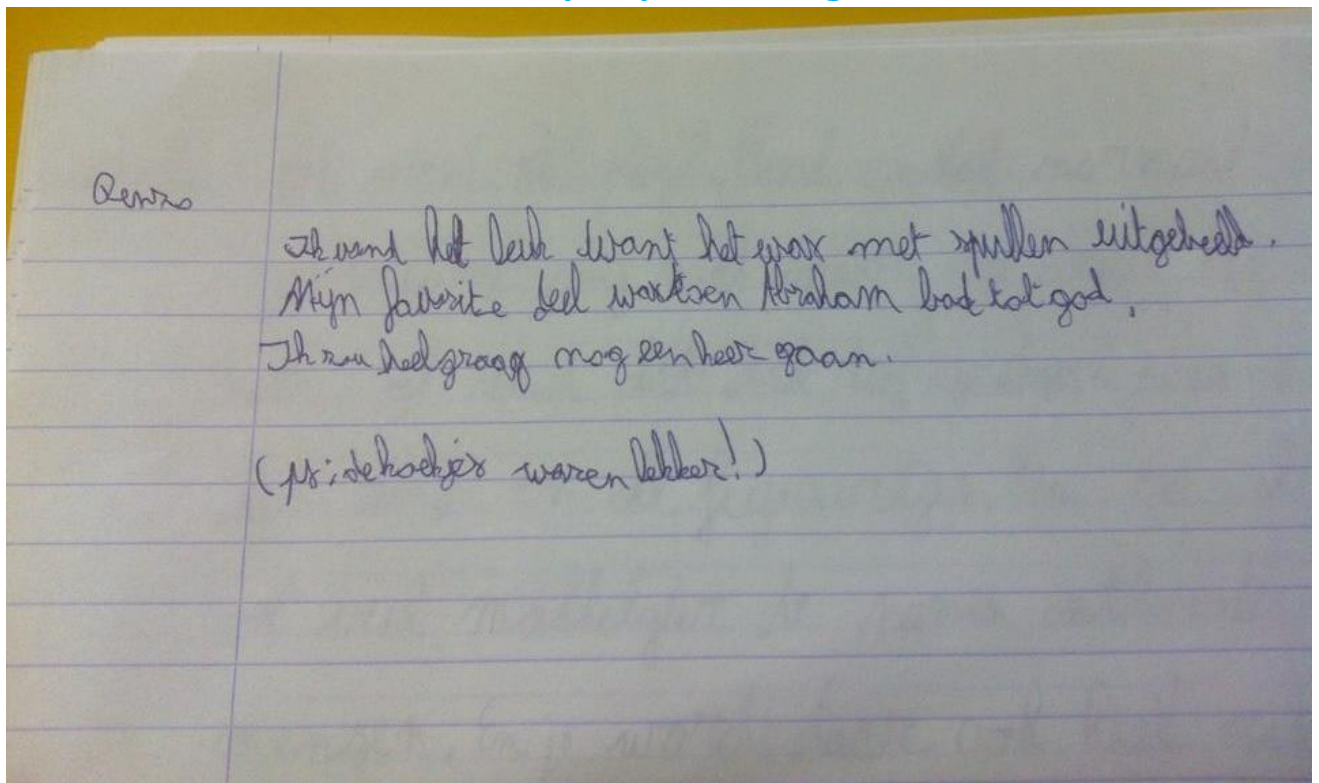 Ik vond het leuk want het was met spullen uitgebeeld.
Mijn favorite deel was toen Abraham bad tot god,
Ik zou heel graag nog een keer gaan.
(ps: de koekjes waren lekker!)